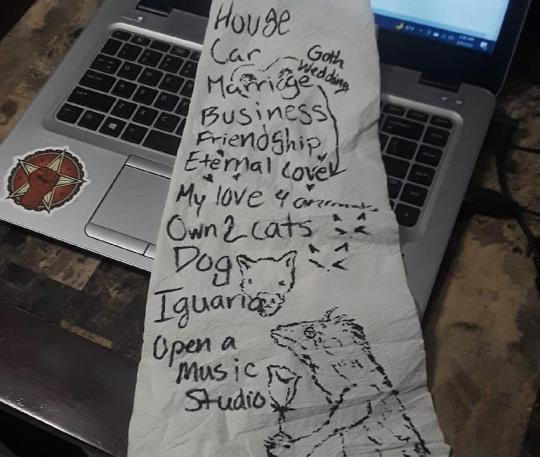 House
Car
Goth
Wedding
Marriage
Business
Friendship
Eternal Love
My love 4
Own 2 cats
Dog
Iguana
Open a
Music
Studio